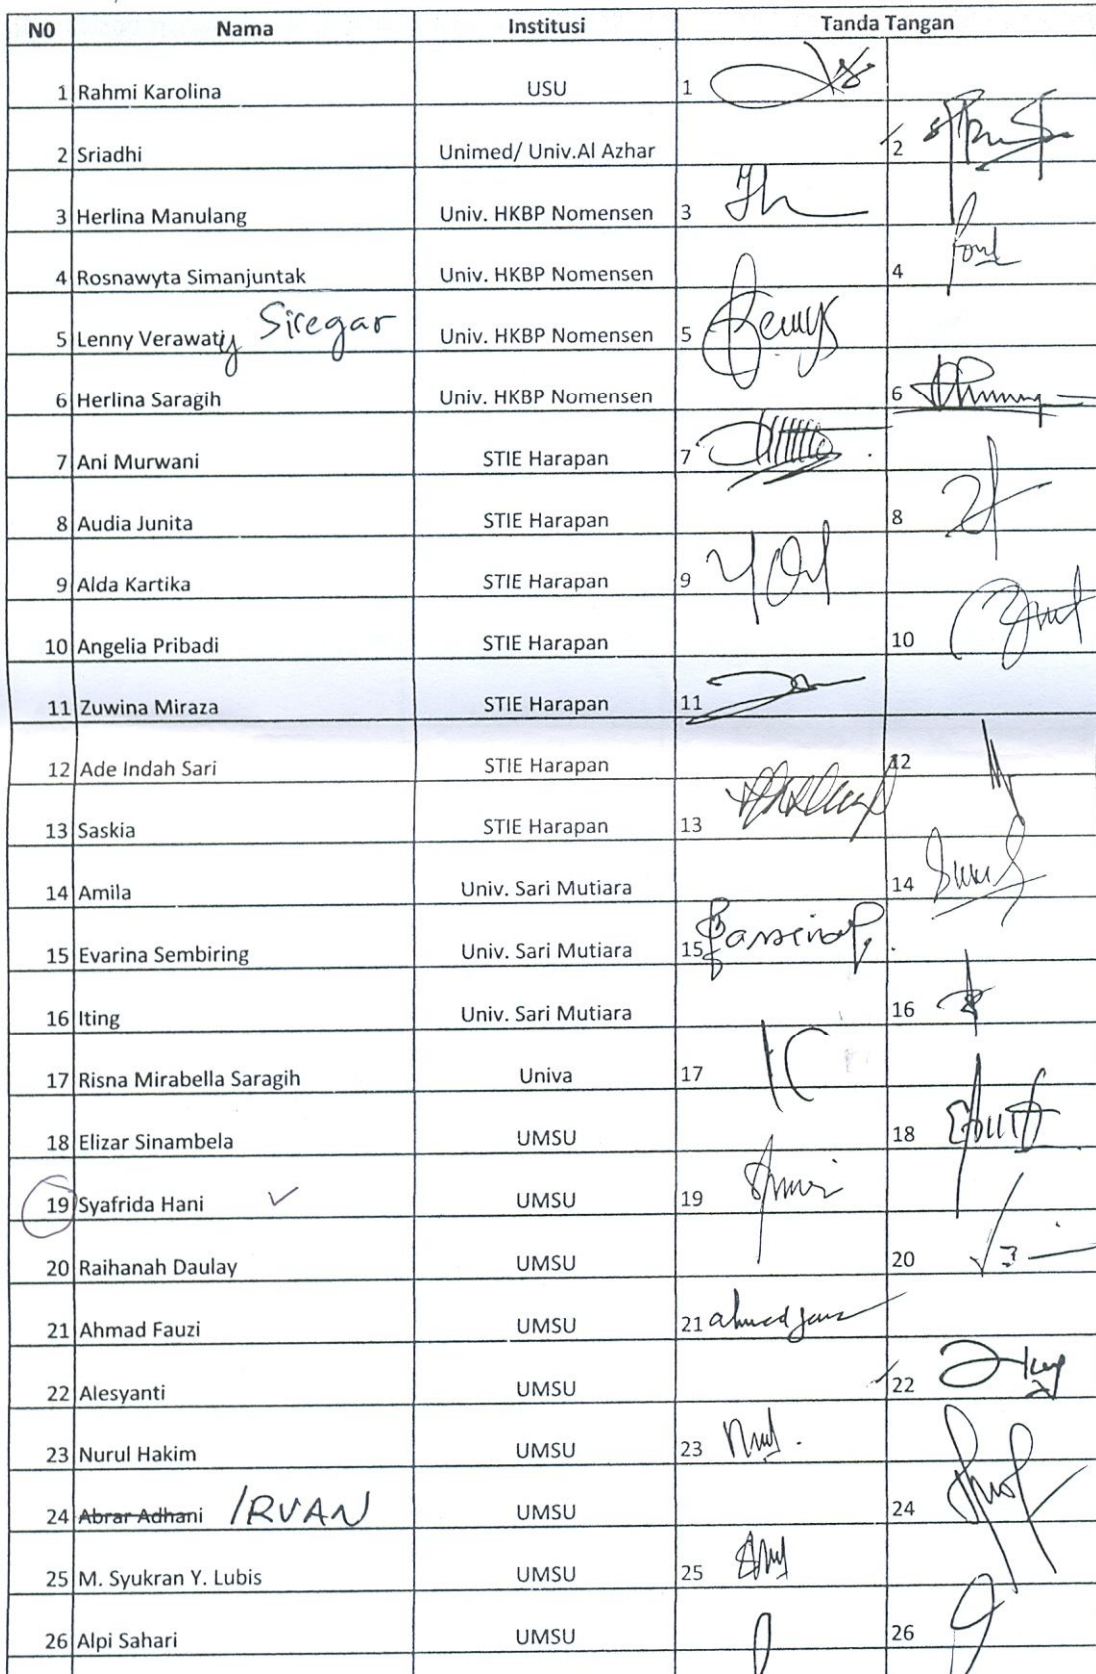 N0 Nama Institusi Tanda Tangan
1 Rahmi Karolina USU 1
2 Sriadhi Unimed/ Univ.Al Azhar 2
3 Herlina Manulang Univ. HKBP Nomensen 3
4 Rosnawyta Simanjuntak Univ. HKBP Nomensen 4
5 Lenny Verawaty Siregar Univ. HKBP Nomensen 5
6 Herlina Saragih Univ. HKBP Nomensen 6
7 Ani Murwani STIE Harapan 7
8 Audia Junita STIE Harapan 8
9 Alda Kartika STIE Harapan 9
10 Angelia Pribadi STIE Harapan 10
11 Zuwina Miraza STIE Harapan 11
12 Ade Indah Sari STIE Harapan 12
13 Saskia STIE Harapan 13
14 Amila Univ. Sari Mutiara 14
15 Evarina Sembiring Univ. Sari Mutiara 15
16 Iting Univ. Sari Mutiara 16
17 Risna Mirabella Saragih Univa 17
18 Elizar Sinambela UMSU 18
19 Syafrida Hani UMSU 19
20 Raihanah Daulay UMSU 20
21 Ahmad Fauzi UMSU 21
22 Alesyanti UMSU 22
23 Nurul Hakim UMSU 23
24 Abrar Adhani IRVAN UMSU 24
25 M. Syukran Y. Lubis UMSU 25
26 Alpi Sahari UMSU 26